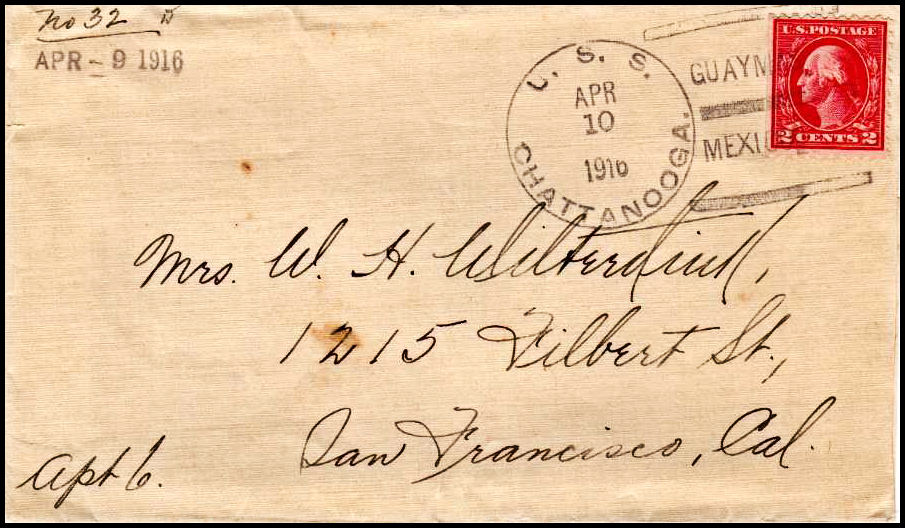 No 32
APR - 9 1916
U. S. S.
CHATTANOOGA.
APR
10
1916
GUAYM
MEXI
U.S. POSTAGE
2 CENTS 2
Mrs. W. H. Wilterdink,
1215 Filbert St.,
San Francisco, Cal.
Apt 6.